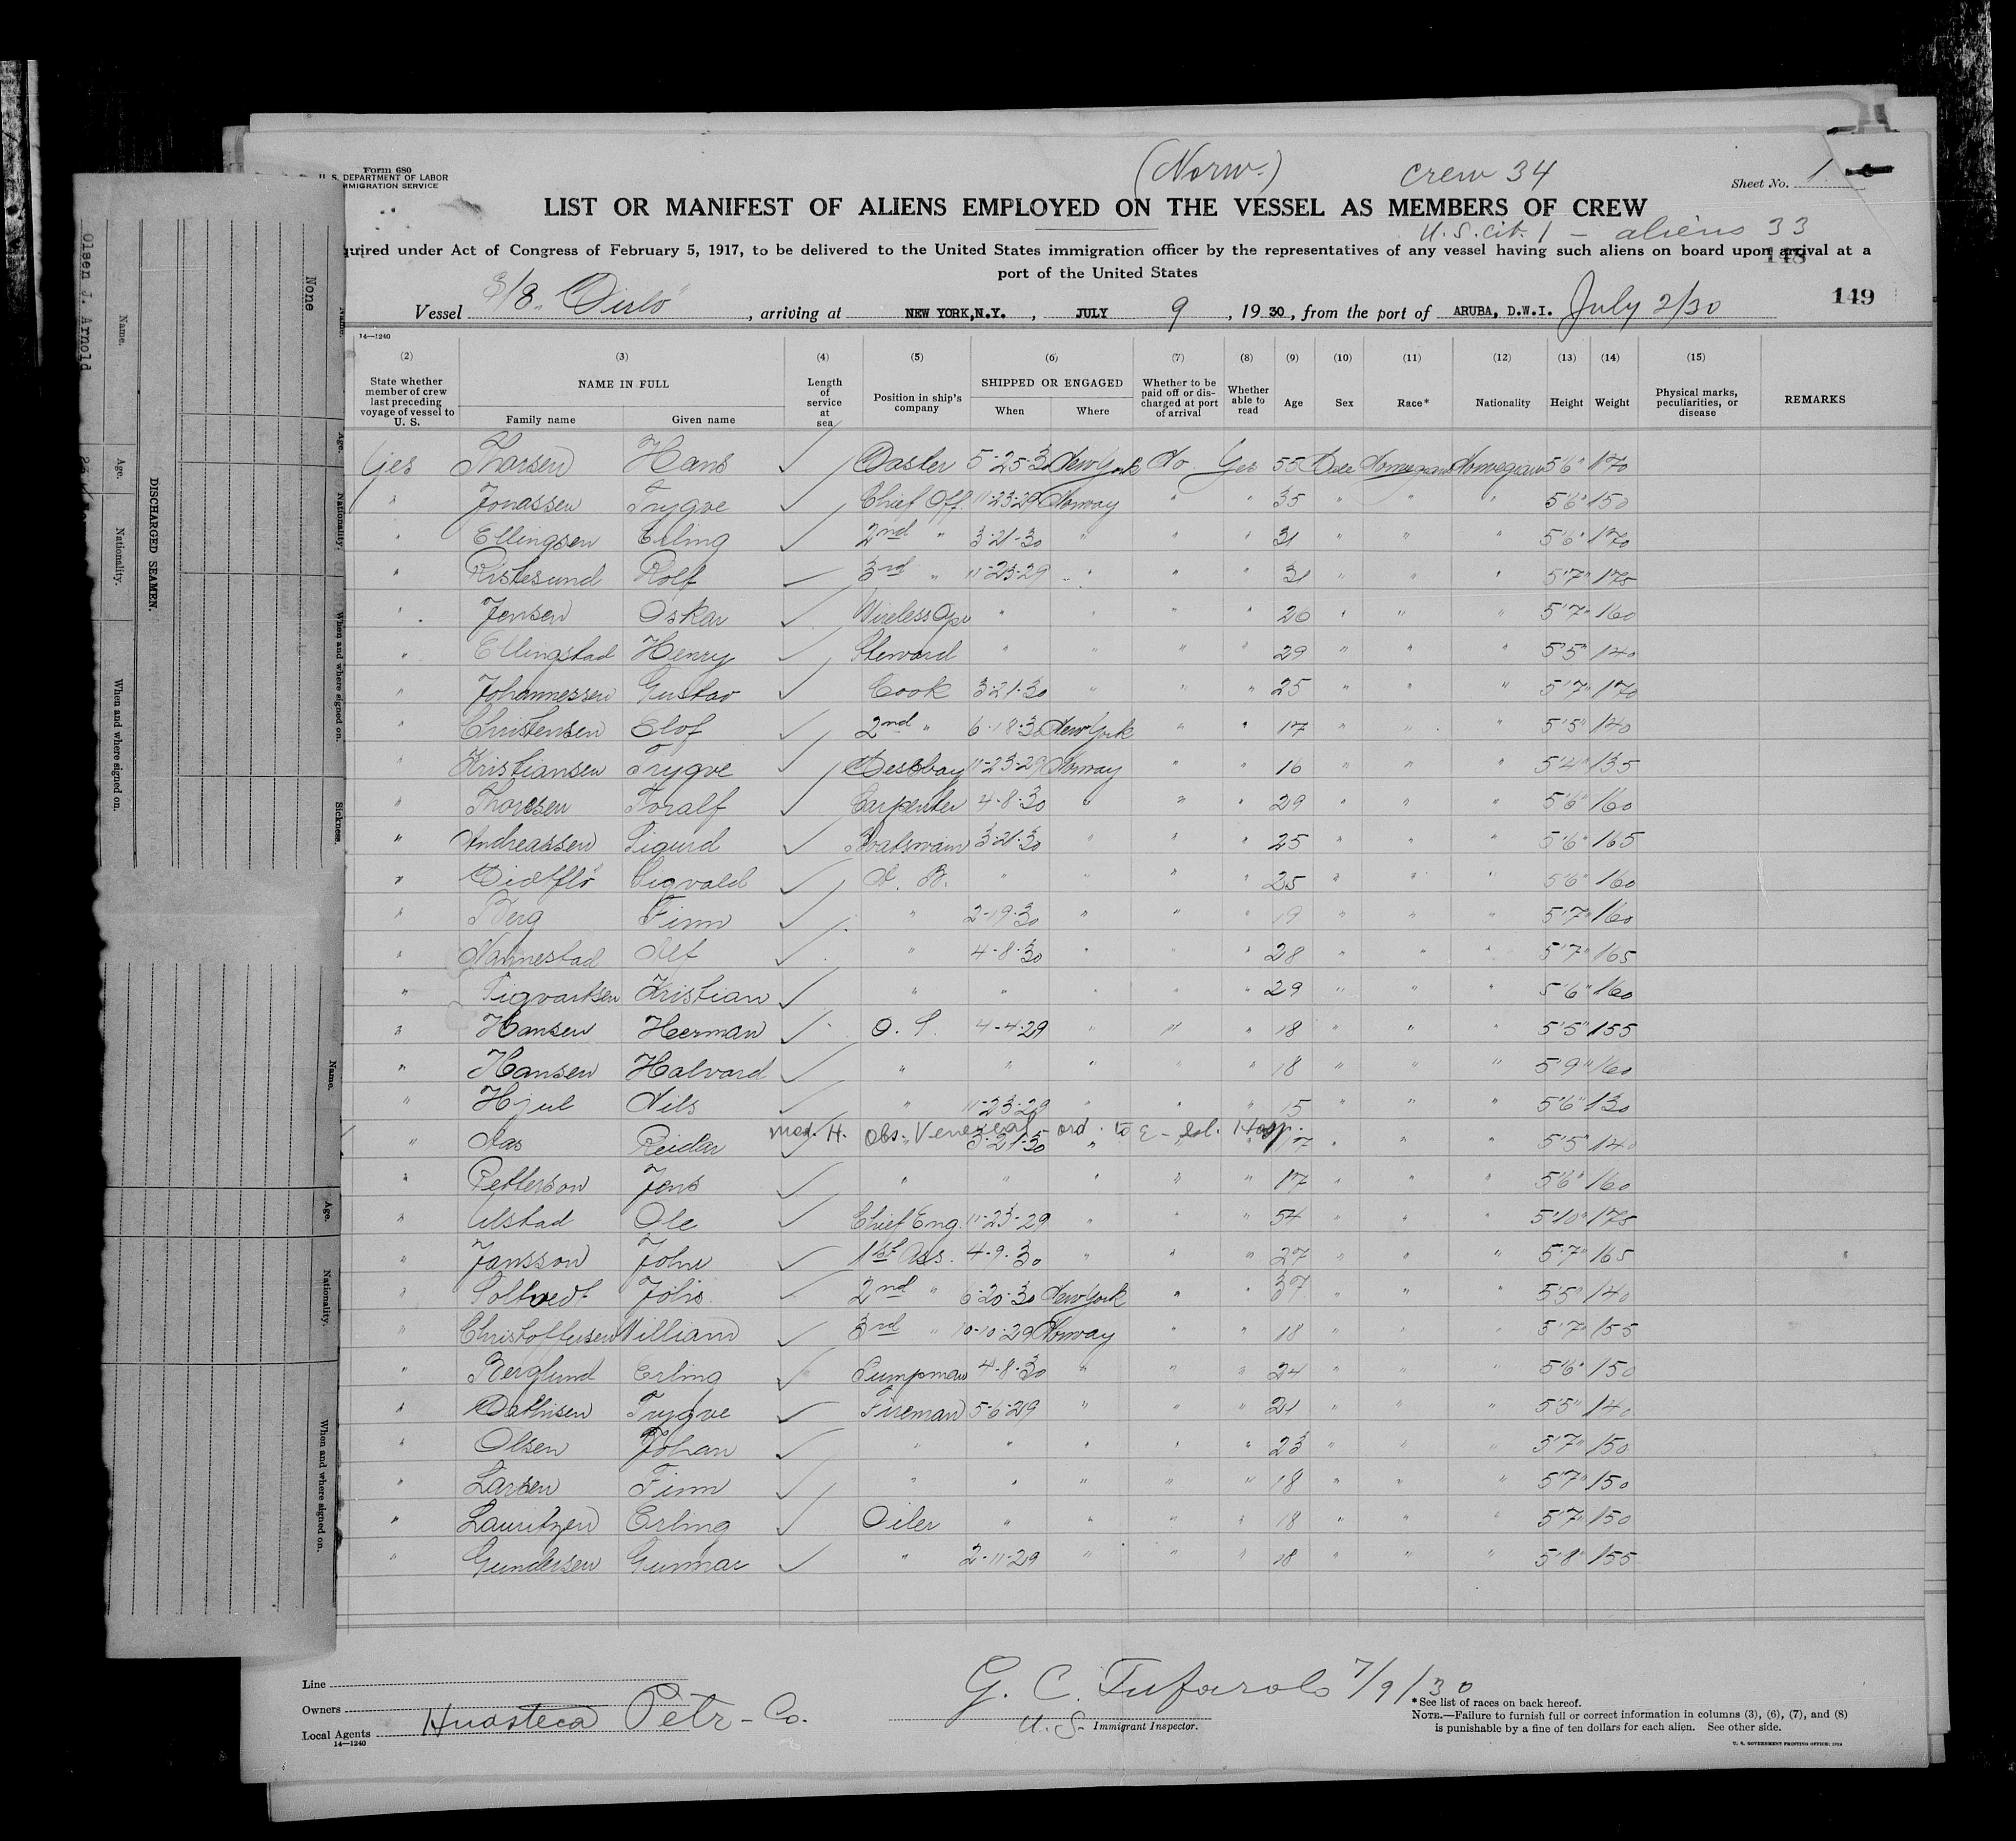 Form 680
U. S. DEPARTMENT OF LABOR
IMMIGRATION SERVICE
(Norw.)
Crew 34
Sheet No. 1
LIST OR MANIFEST OF ALIENS EMPLOYED ON THE VESSEL AS MEMBERS OF CREW
U. S. cit. 1 - aliens 33
quired under Act of Congress of February 5, 1917, to be delivered to the United States immigration officer by the representatives of any vessel having such aliens on board upon arrival at a
port of the United States
148
149
Vessel , arriving at NEW YORK, N.Y. , JULY 9 , 19 30 , from the port of ARUBA, D.W.I. July 2/30
14—1240
(2) (3) (4) (5) (6) (7) (8) (9) (10) (11) (12) (13) (14) (15)
State whether member of crew last preceding voyage of vessel to U. S. NAME IN FULL Family name Given name Length of service at sea Position in ship's company SHIPPED OR ENGAGED When Where Whether to be paid off or discharged at port of arrival Whether able to read Age Sex Race* Nationality Height Weight Physical marks, peculiarities, or disease REMARKS
Yes Thorsen Hans ✓ Master 5-25-30 New York No Yes 55 Norwegian Norwegian 5'6" 170
" Jonassen Trygve ✓ Chief Off. 11-23-29 Norway " " 35 " " " 5'6" 150
" Ellingsen Erling ✓ 2nd " 3-21-30 " " " 31 " " " 5'6" 170
" Ristesund Rolf ✓ 3rd " 11-23-29 " " " 31 " " " 5'7" 175
" Jensen Oskar ✓ Wireless Opr " " " " 26 " " " 5'7" 160
" Ellingstad Henry ✓ Steward " " " " 29 " " " 5'5" 140
" Johannessen Gustav ✓ Cook 3-21-30 " " " 25 " " " 5'7" 170
" Christensen Olof ✓ 2nd " 6-18-30 New York " " 17 " " " 5'5" 140
" Kristiansen Trygve ✓ Messboy 11-23-29 Norway " " 16 " " " 5'4" 135
" Thoresen Toralf ✓ Carpenter 4-8-30 " " " 29 " " " 5'6" 160
" Andreassen Sigurd ✓ Boatswain 3-21-30 " " " 25 " " " 5'6" 165
" Sigvald ✓ A. B. " " " " 25 " " " 5'6" 160
" Berg Finn ✓ " 2-19-30 " " " 19 " " " 5'7" 160
" Nannestad Alf ✓ " 4-8-30 " " " 28 " " " 5'7" 165
" Sigvartsen Kristian ✓ " " " " " 29 " " " 5'6" 160
" Hansen Herman ✓ O. S. 4-4-29 " " " 18 " " " 5'5" 155
" Hansen Halvard ✓ " " " " " 18 " " " 5'9" 160
" Hjul Nils ✓ " 11-23-29 " " " 15 " " " 5'6" 130
Med. H. Obs. Venereal ord. to E-Isl. Hosp.
" Aas Reidar ✓ " 3-21-30 " " " 17 " " " 5'5" 140
" Petterson Jens ✓ " " " " " 17 " " " 5'6" 160
" Ulstad Ole ✓ Chief Eng. 11-23-29 " " " 54 " " " 5'10" 175
" Jansson John ✓ 1st Ass. 4-9-30 " " " 27 " " " 5'7" 165
" Soltvedt ✓ 2nd " 6-20-30 New York " " 37 " " " 5'5" 140
" Christoffersen William ✓ 3rd " 10-10-29 Norway " " 18 " " " 5'7" 155
" Berglund Erling ✓ Pumpman 4-8-30 " " " 24 " " " 5'6" 150
" Mathisen Trygve ✓ Fireman 5-6-29 " " " 21 " " " 5'5" 140
" Olsen Johan ✓ " " " " " 23 " " " 5'7" 150
" Larsen Finn ✓ " " " " " 18 " " " 5'7" 150
" Lauritzen Erling ✓ Oiler " " " " 18 " " " 5'7" 150
" Gundersen Gunnar ✓ " 2-11-29 " " " 18 " " " 5'8" 155
Line
Owners
Local Agents Huasteca Petr-Co.
14—1240
G. C. Tufarolo 7/9/30
U. S. Immigrant Inspector.
*See list of races on back hereof.
NOTE.—Failure to furnish full or correct information in columns (3), (6), (7), and (8)
is punishable by a fine of ten dollars for each alien. See other side.
U. S. GOVERNMENT PRINTING OFFICE:
DISCHARGED SEAMEN.
Name. Age. Nationality. When and where signed on.
Olsen J. Arnold
None
Name. Age. Nationality. When and where signed on. Sickness.
Name. Age. Nationality. When and where signed on.